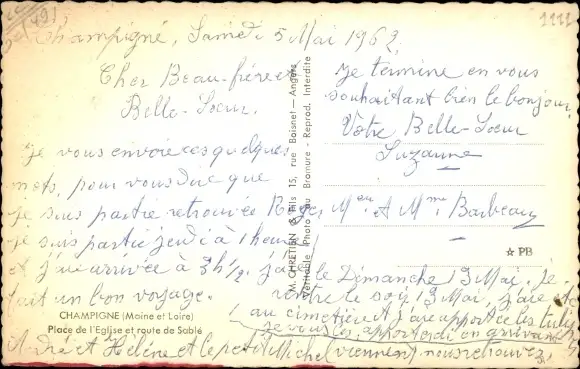 (49)
1111
Champigné, Samedi 5 Mai 1962.
Cher Beau-frère et
Belle-Soeur.
Je vous envoie ces quelques
mots, pour vous dire que
je suis partie retrouvée
je suis partie jeudi à 1 heure
et j'ai arrivée à 3h 1/2. j'ai
fait un bon voyage.
CHAMPIGNE (Maine et Loire)
Place de l'Eglise et route de Sablé
M. CHRETIEN & Fils 15, rue Boisnet — Angers
Véritable Photo au Bromure - Reprod. Interdite
Je termine en vous
souhaitant bien le bonjour.
Votre Belle-Soeur
Suzanne
Meur et Mme Barbeau
☆ PB
le Dimanche 13 Mai. Je
rentre le soir 13 Mai, j'ai été
au cimetière et j'ai apporté les
je vous les apporterai en arrivant
André et Hélène et le petit Michel (viennent) nous retrouvez,